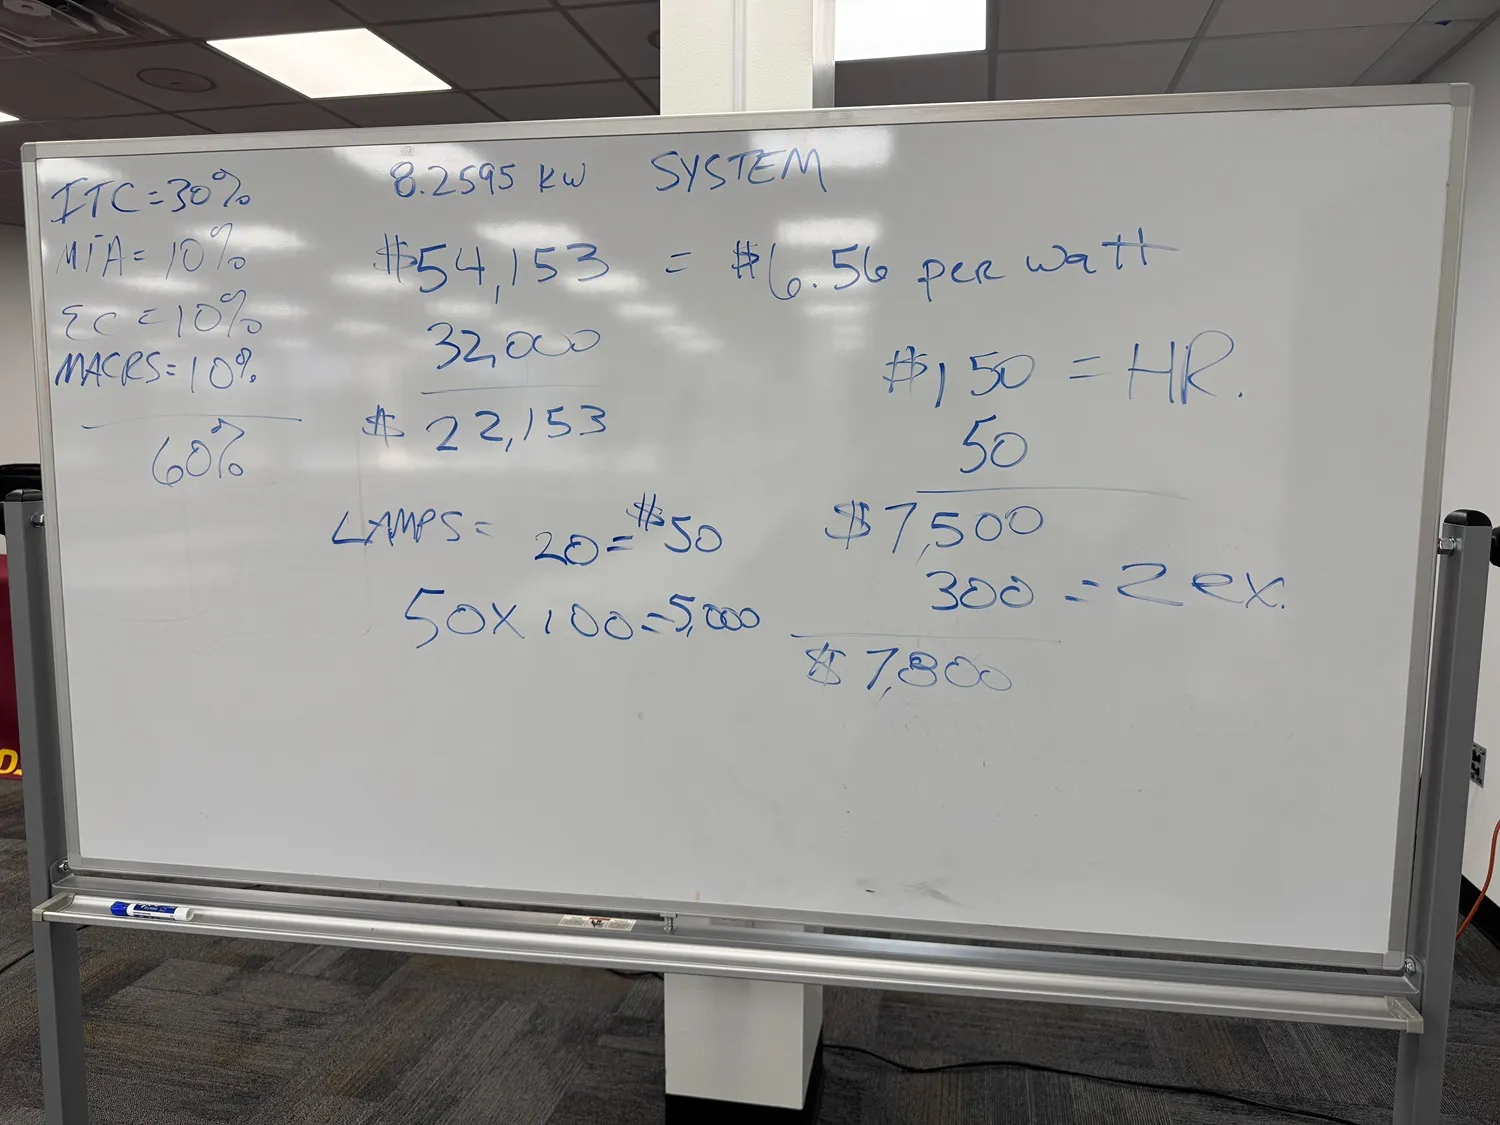 ITC = 30%
MIA = 10%
EC = 10%
MACRS = 10%
60%
8.2595 KW SYSTEM
$54,153 = $6.56 per watt
32,000
$ 22,153
LAMPS = 20 = $50
50 X 100 = 5,000
$150 = HR.
50
$7,500
300 = 2 ex.
$7,800